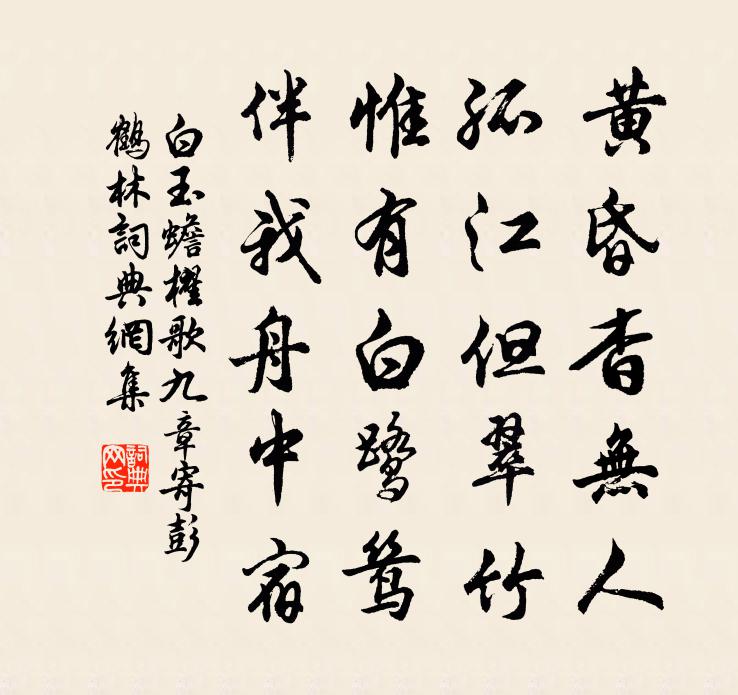 黄昏杳無人
孤江但翠竹
惟有白鷺鷥
伴我舟中宿
白玉蟾櫂歌九章寄彭
鶴林詞典網集
詞典
网印